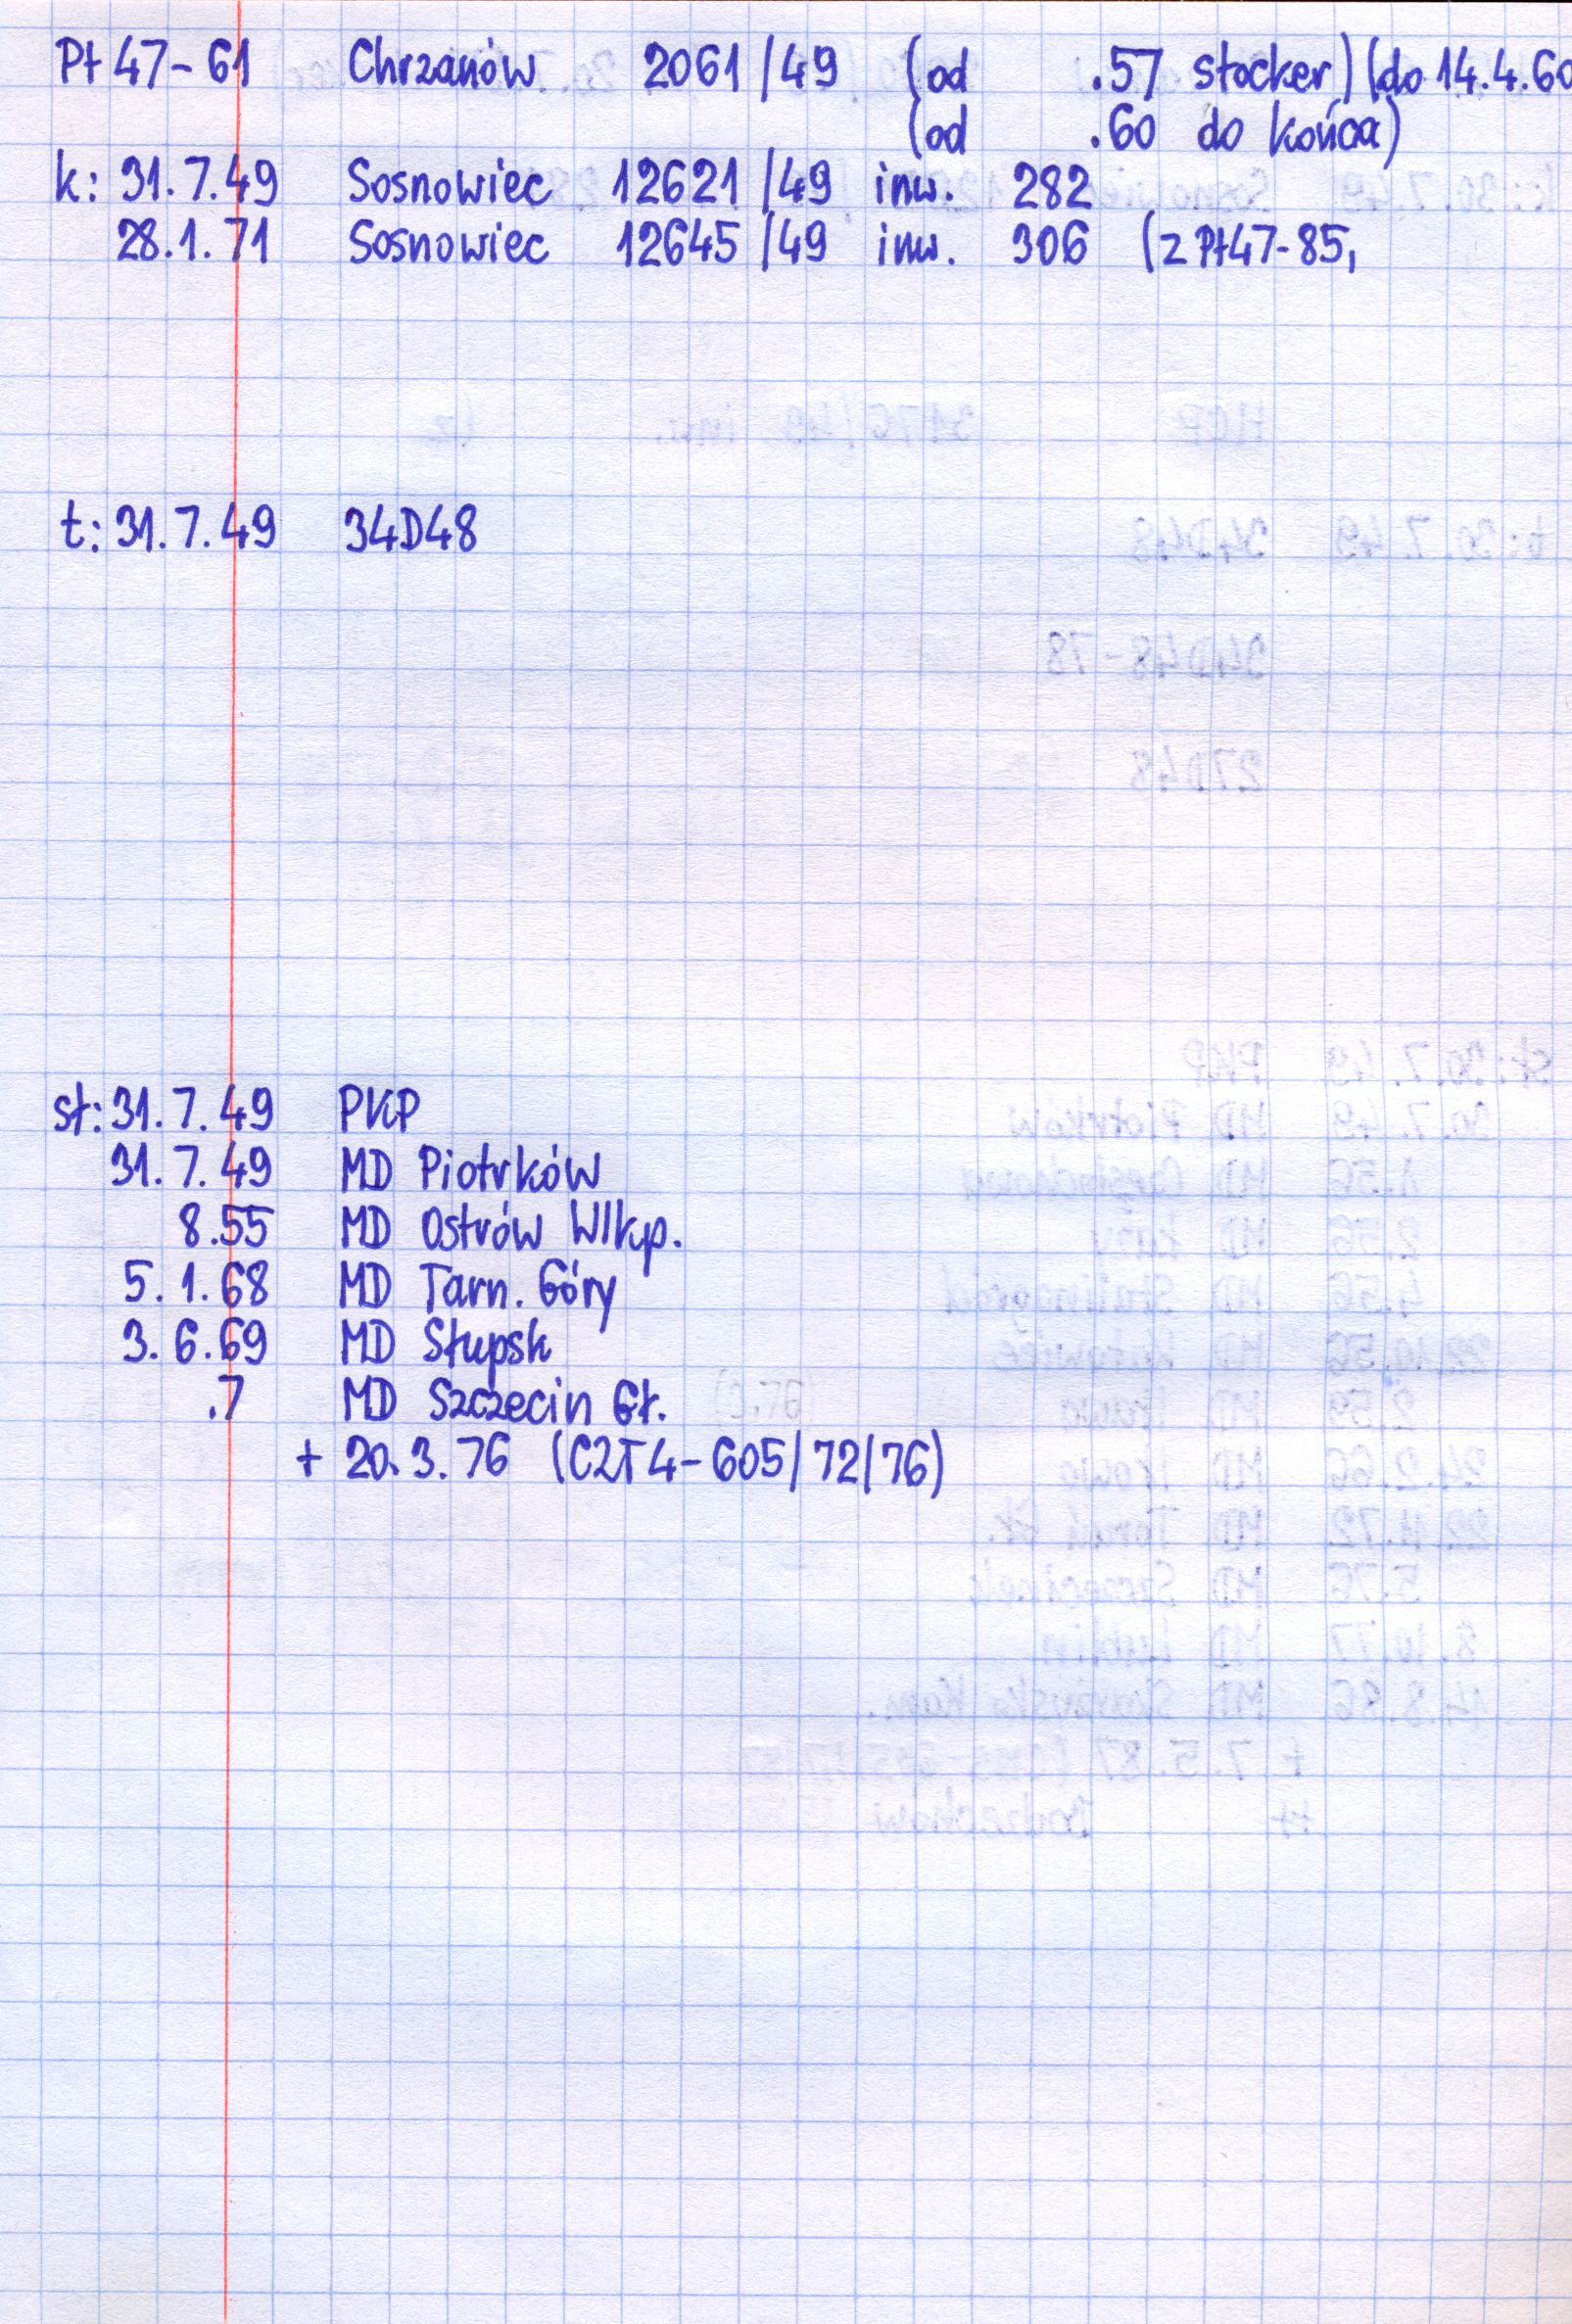 Pt47-61 Chrzanów 2061/49 (od .57 stocker) (do 14.4.60
(od .60 do końca)
k: 31.7.49 Sosnowiec 12621/49 inw. 282
28.1.71 Sosnowiec 12645/49 inw. 306 (z Pt47-85,
t: 31.7.49 34D48
st: 31.7.49 PKP
31.7.49 MD Piotrków
8.55 MD Ostrów Wlkp.
5.1.68 MD Tarn. Góry
3.6.69 MD Słupsk
.7 MD Szczecin Gł.
+ 20.3.76 (C2T4-605/72/76)